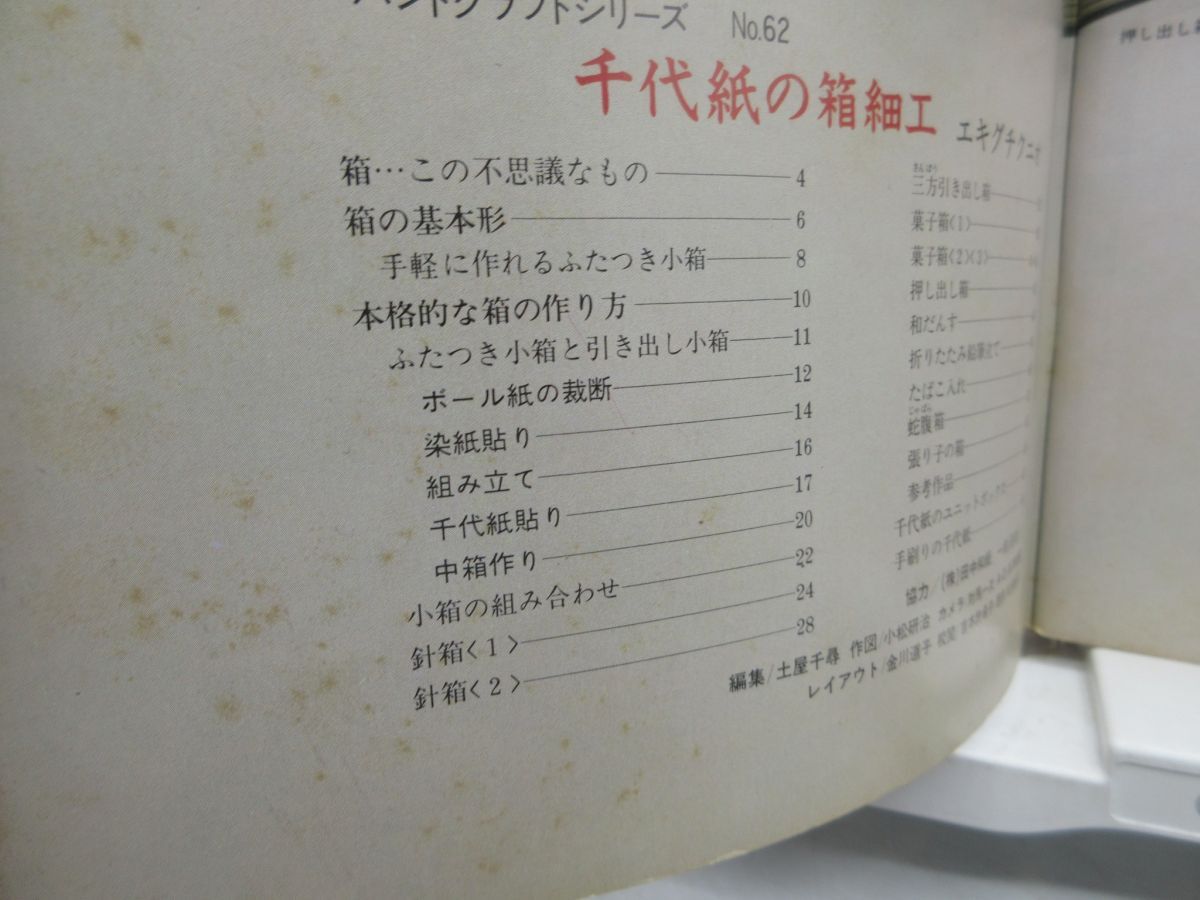 ハンドクラフトシリーズ No.62
千代紙の箱細工 エキグチクニオ
箱…この不思議なもの 4
箱の基本形 6
手軽に作れるふたつき小箱 8
本格的な箱の作り方 10
ふたつき小箱と引き出し小箱 11
ボール紙の裁断 12
染紙貼り 14
組み立て 16
千代紙貼り 17
中箱作り 20
小箱の組み合わせ 22
針箱〈1〉 24
針箱〈2〉 28
さんぼう
三方引き出し箱
菓子箱〈1〉
菓子箱〈2〉〈3〉
押し出し箱
和だんす
折りたたみ鉛筆立て
たばこ入れ
じゃばら
蛇腹箱
張り子の箱
参考作品
千代紙のユニットボックス
手刷りの千代紙
協力/(株)田中和紙
編集/土屋千尋 作図/小松研治 カメラ
レイアウト/金川道子 校閲
押し出し